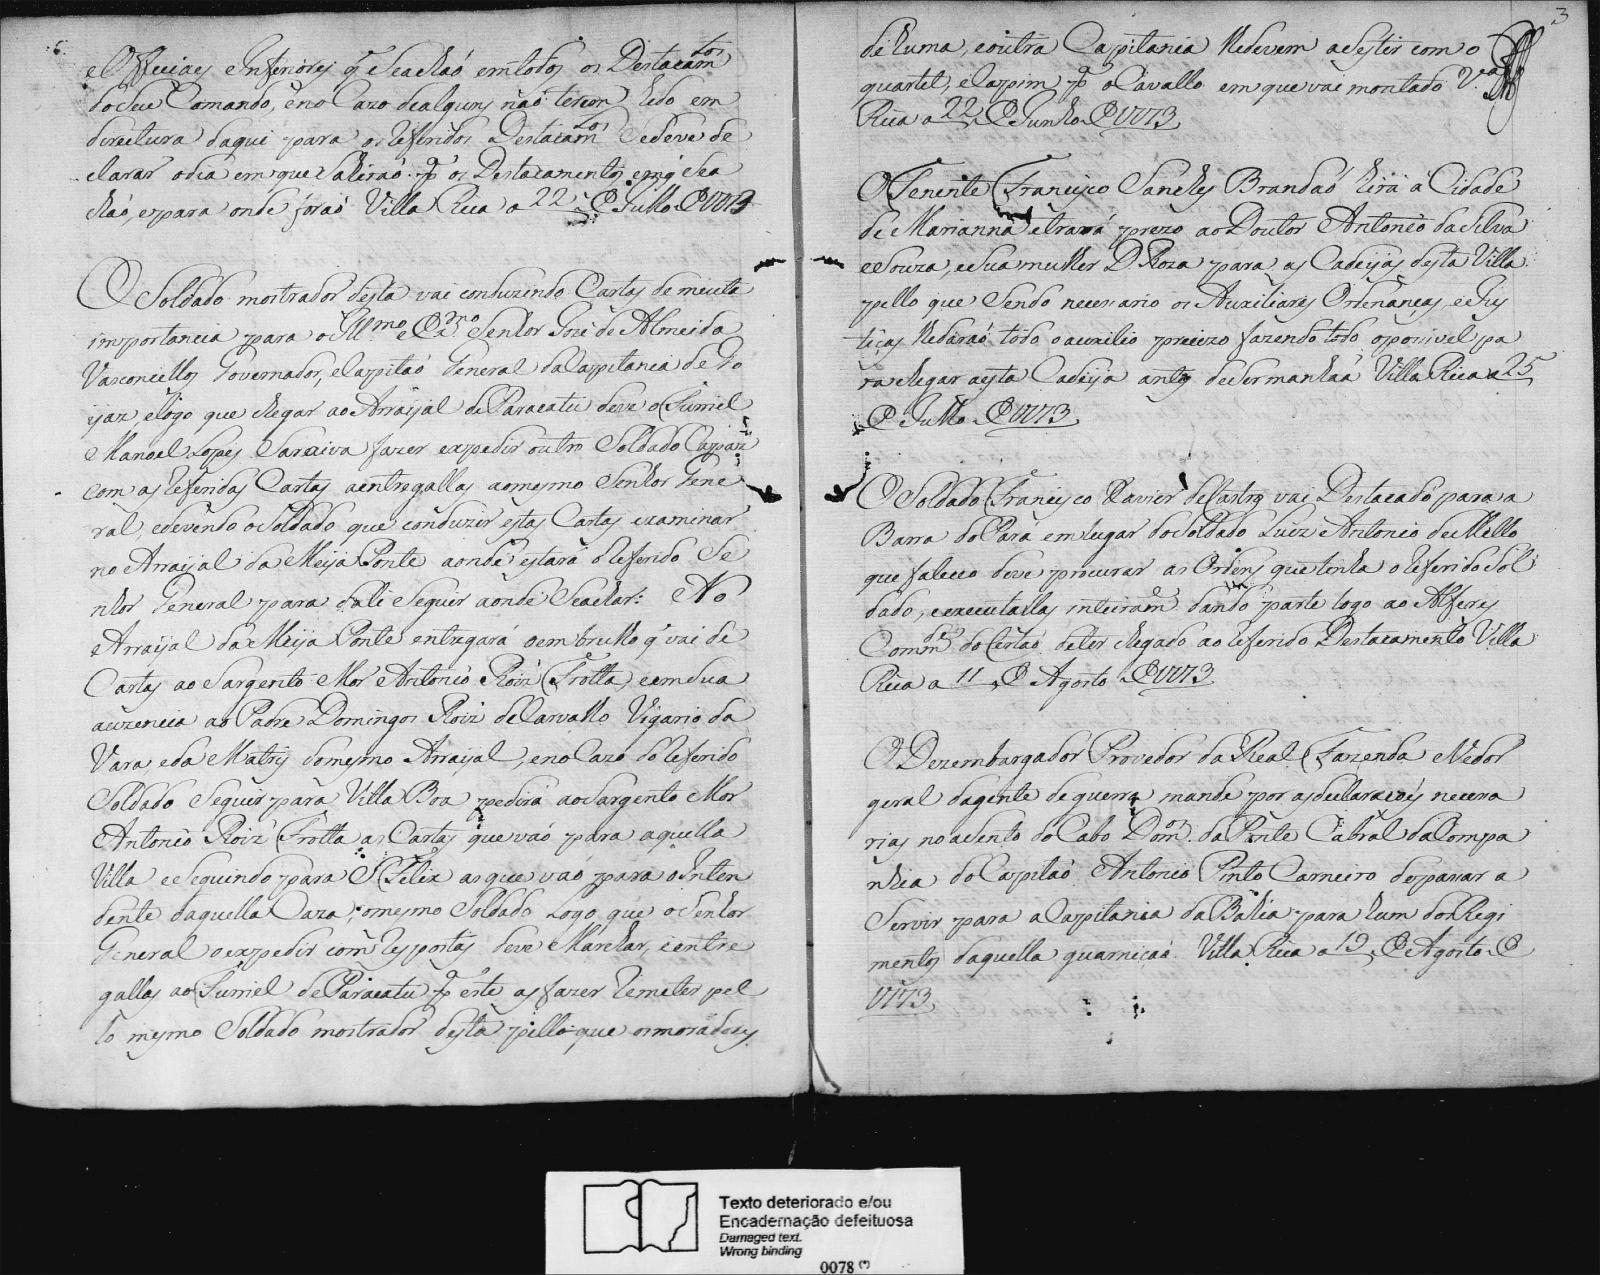 eOfficiaes eInferiores q̃ Seachaó em todos os Destacam.tos
do Seu Comando, eno Cazo dealguns não terem hido em
direitura daqui para os referidos Destacam.tos Sedeve de
clarar odia em que Sahiraó p.ª os Destacamentos emq̃ Sea
chaó, epara onde foraó Villa Rica a 22 de Julho de 1773

O Soldado mostrador desta vai conduzindo Cartas de muita
importancia para o Ill.mo e Ex.mo Senhor Jozé de Almeida
Vasconcellos Governador, eCapitaó General daCapitania de Go
yaz, elogo que chegar ao Arrayal de Paracatu deve o Furriel
Manoel Lopes Saraiva fazer expedir outro Soldado Capaz
com as referidas Cartas aentregallas aomesmo Senhor Gene
ral, edevendo oSoldado que conduzir estas Cartas examinar
no Arrayal da Meya Ponte aonde estará o referido Se
nhor General para dali Seguir aonde Seachar: No
Arrayal da Meya Ponte entregará oembrulho q̃ vai de
Cartas ao Sargento Mór Antonio Roiz Frotta, eemsua
auzencia ao Padre Domingos Roiz deCarvalho Vigario da
Vara, eda Matris domesmo Arrayal, eno Cazo do referido
Soldado Seguir para Villa Boa pedirá aoSargento Mor
Antonio Roiz Frotta as Cartas que vaó para aquella
Villa eSeguindo para S Felix asque vaó para oInten
dente daquella Caza, omesmo Soldado Logo que oSenhor
General oexpedir com respostas deve Marchar, eentre
gallas ao Furriel de Paracatu p.ª este as fazer remeter pel
lo mesmo Soldado mostrador desta pello que osmoradores

3
dehuma, eoutra Capitania hedevem asestir com o
quartel, eCapim p.ª oCavallo em que vai montado V.ª
Rica a 22 de Junho de 1773

O Tenente Francisco Sanches Brandaó hirá á Cidade
de Marianna etrará prezo ao Doutor Antonio daSilva
eSouza, esua mulher D. Roza para as Cadeyas desta Villa
pello que Sendo necessario os Auxiliares Ordenanças, eJus
tiças hedaraó todo oauxilio precizo fazendo todo oposivel pa
ra chegar aesta Cadeya antes deSermanhaã Villa Rica a 25
de Julho de 1773

O Soldado Francisco Xavier deCastro vai Destacado para a
Barra doPará emlugar doSoldado Luiz Antonio de Mello
que faleceo deve procurar as Ordens que tinha oreferidoSol
dado, eexecutallas inteiram.e dando parte logo ao Alferes
Comm.de do Certaó deter chegado ao referido Destacamento Villa
Rica a 11 de Agosto de 1773

O Dezembargador Provedor da Real Fazenda eVedor
geral dagente de guerra mande por asdeclaracoés necessa
rias noasento do Cabo Dom.os da Ponte Cabral daCompa
nhia do Capitaó Antonio Pinto Carneiro depasar a
Servir para aCapitania da Bahia para hum dos Regi
mentos daquella guarniçaó Villa Rica a 19 de Agosto de
1773

Texto deteriorado e/ou
Encadernação defeituosa
Damaged text.
Wrong binding
0078 (*)